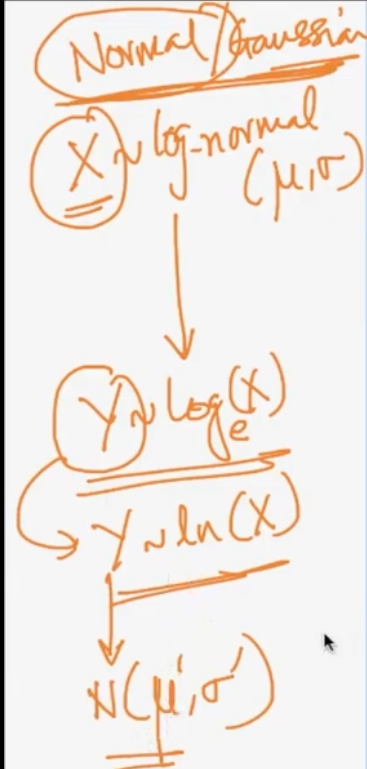 Normal/Gaussian
X ~ log-normal
(μ,σ)
Y ~ log_e(X)
Y ~ ln(X)
N(μ',σ')